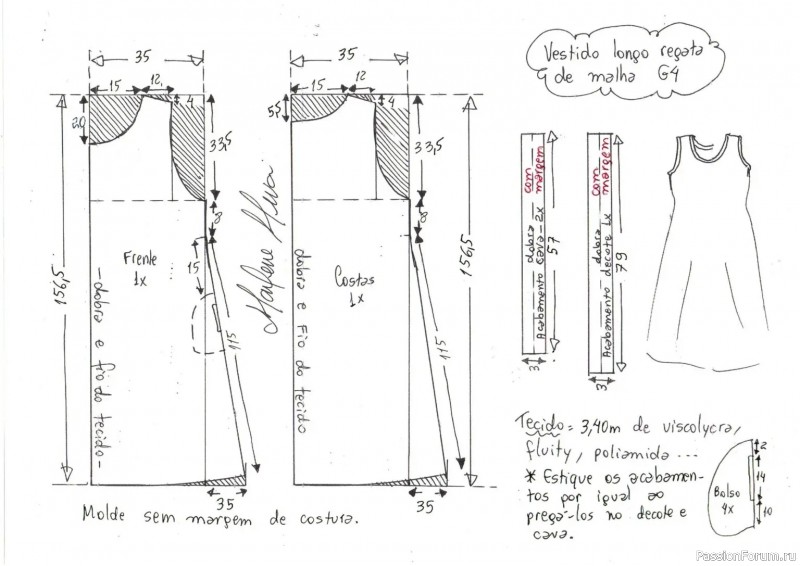 35
15
12
4
20
33,5
8
156,5
Frente
1x
15
115
- dobra e fio do tecido -
35
Marlene Mukai
35
15
12
4
5,5
33,5
8
156,5
Costas
1x
115
dobra e fio do tecido
35
Molde sem margem de costura.
Vestido longo regata
de malha G4
com
margem
dobra
Acabamento cava - 2x
57
3
com
margem
dobra
Acabamento decote 1x
79
3
Tecido = 3,40m de viscolycra,
fluity, poliamida ...
* Estique os acabamen-
tos por igual ao
pregá-los no decote e
cava.
Bolso
4x
2
14
10
PassionForum.ru